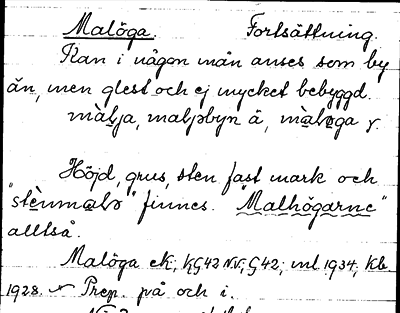 Malöga. Fortsättning.
Kan i någon mån anses som by
än, men glest och ej mycket bebyggd.
màlja, maljobyn å, màløga γ.
Höjd, grus, sten fast mark och
"stènmalo" finnes. "Malhögarne"
alltså.
Malöga ek, kG42 N.V, G42, ml 1934, kb
1928. Prep. på och i.